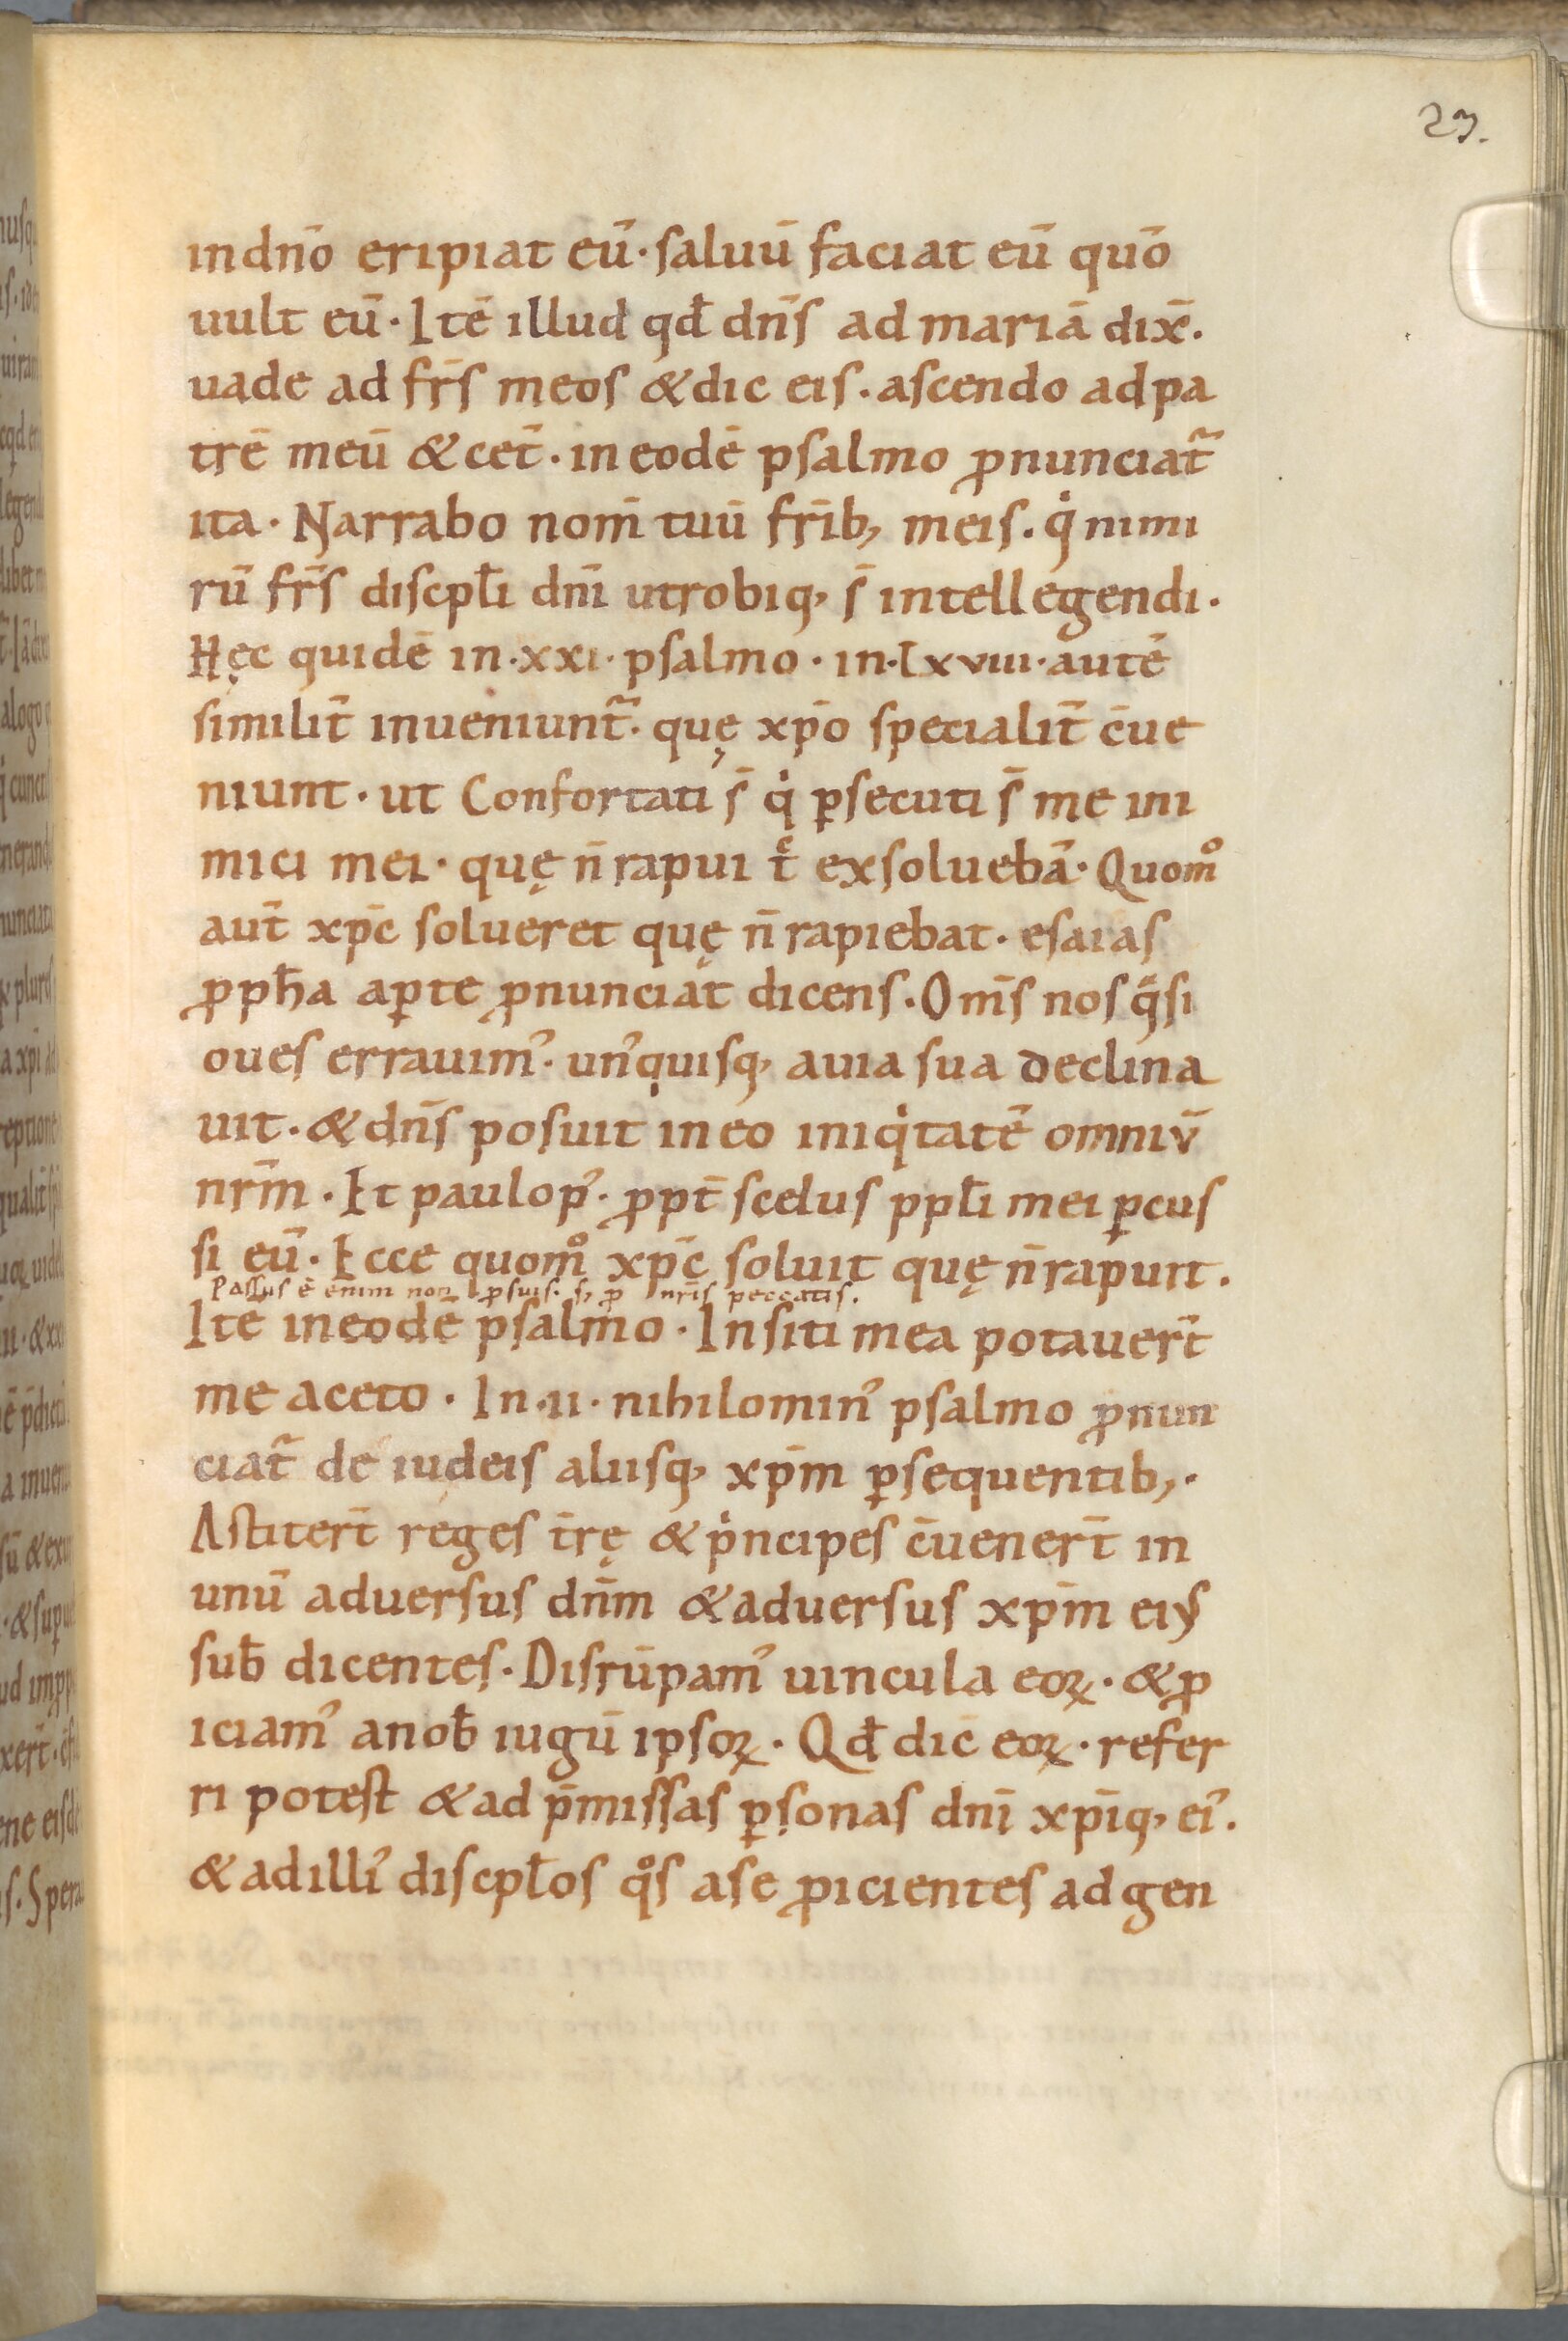 23.
in dn̄o eripiat eū · saluū faciat eū quō
uult eū · Itē illud qđ dn̄s ad mariā dix̄.
uade ad fr̄s meos & dic eis · ascendo ad pa
trē meū & cet̄ · in eodē psalmo ꝓnunciat᷑
ita · Narrabo nom̄ tuū fr̄ib; meis . qͥ nimi
rū fr̄s discpl̄i dn̄i utrobiq; s̄ intellegendi ·
Hęc quidē in · xxi · psalmo · in · lxviii · autē
similit̄ inueniunt᷑ · quę xp̄o specialit̄ c̄ue
niunt · ut Confortati s̄ qͥ ꝑsecuti s̄ me ini
mici mei · quę n̄ rapui tͨ exsoluebā · Quomͦ
aut̄ xp̄c solueret quę n̄ rapiebat · esaias
ꝓph̄a aꝑte ꝓnunciat dicens . Om̄s nos qͣsi
oues errauimꝰ · unꝰquisq; a uia sua declina
uit · & dn̄s posuit in eo iniqͥtatē omniū
nr̄m · Et paulo pꝰ · ꝓpt̄ scelus ppl̄i mei ꝑcus
si eū · Ecce quomͦ xp̄c soluit quę n̄ rapuit .
Passus ē enim non ꝓ suis · s; ꝓ nr̄is peccatis .
Itē in eodē psalmo · In siti mea potauer̄t
me aceto · In · ii · nihilominꝰ psalmo ꝓnun
ciat᷑ de iudeis aliisq; xp̄m ꝑsequentib; ·
Astiter̄t reges t̄rę & pͥncipes c̄uener̄t in
unū aduersus dn̄m & aduersus xp̄m eiꝰ
sub̄ dicentes · Disrūpamꝰ uincula eoꝝ · & ꝓ
iciamꝰ a nob̄ iugū ipsoꝝ · Qđ dic̄ eoꝝ · refer
ri potest & ad p̄missas ꝑsonas dn̄i xp̄iq; eiꝰ .
& ad illiꝰ discpl̄os qͦs a se ꝓicientes ad gen